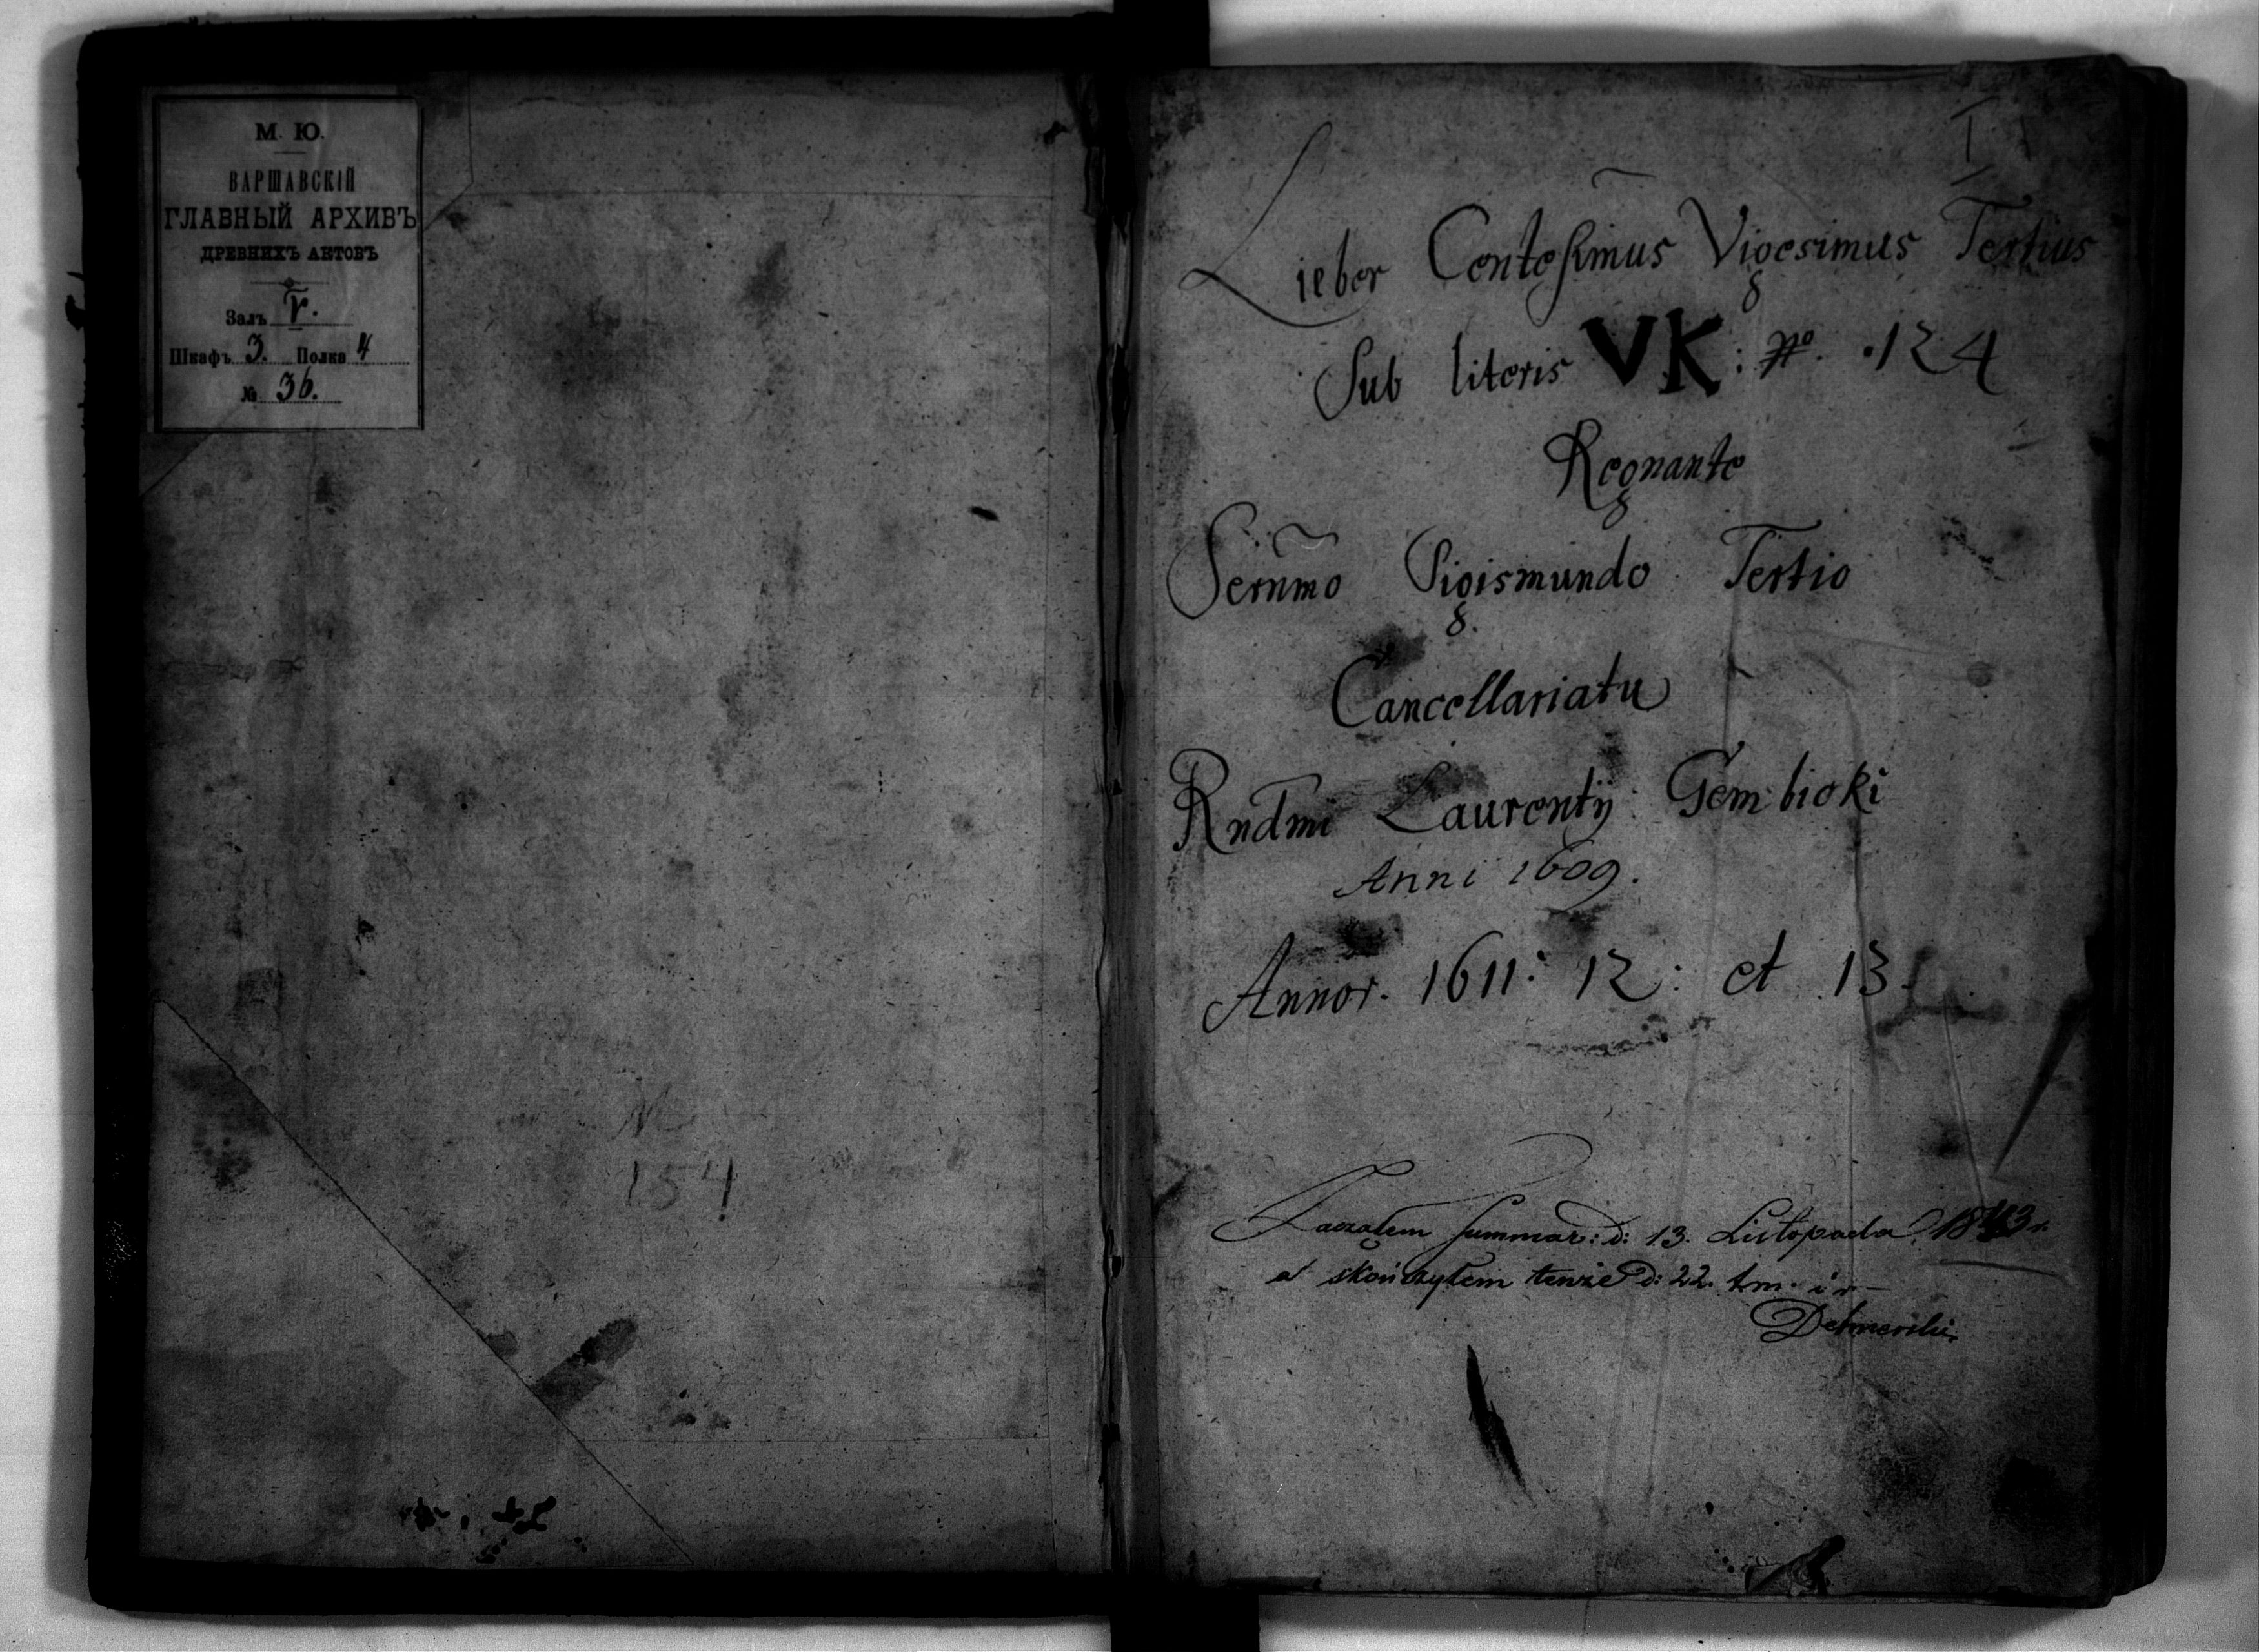 М. Ю.
ВАРШАВСКІЙ
ГЛАВНЫЙ АРХИВЪ
ДРЕВНИХЪ АКТОВЪ
Залъ V.
Шкафъ 3. Полка 4
№ 36.
154
Lieber Centesimus Vigesimus Tertius
Sub literis VK: No. 124
Regnante
Sernmo Sigismundo Tertio
Cancellariatu
Rndmi Laurentij Gembicki
Anni 1609.
Annor. 1611: 12: et 13.
Zacząłem Summar: d: 13. Listopada 1843 r.
a skończyłem tenże d: 22. t.m. i r